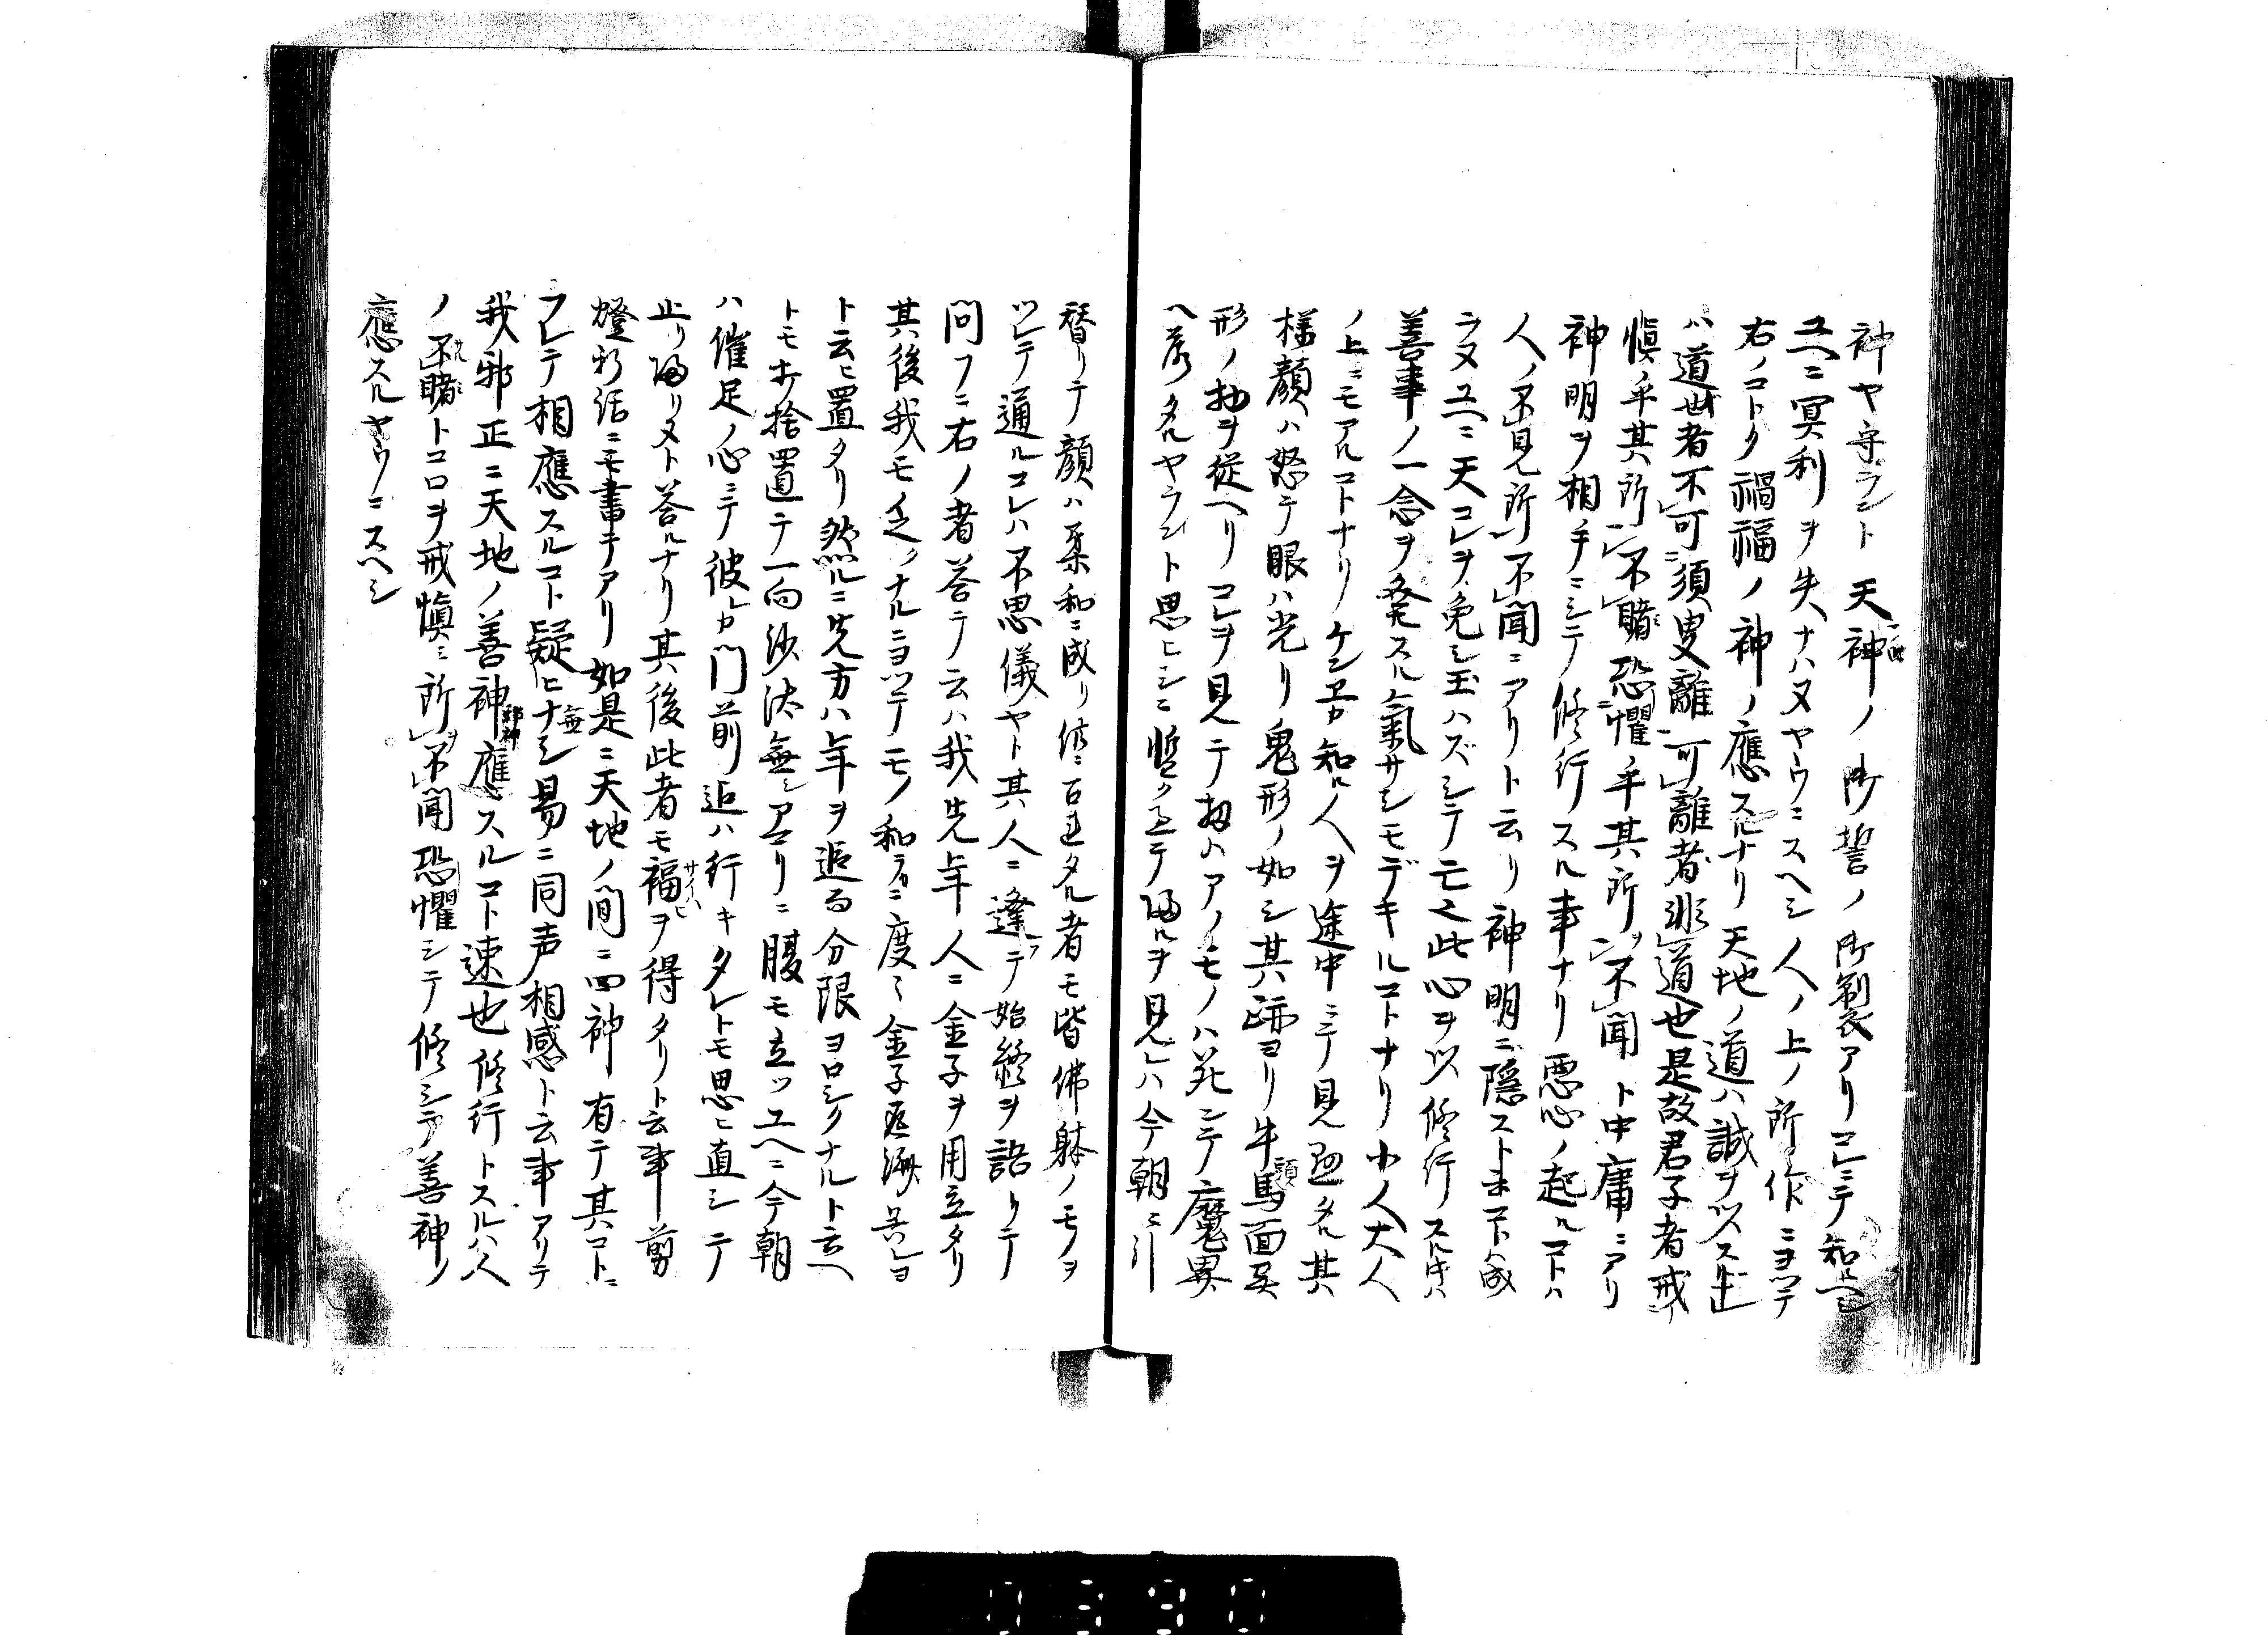 神ヤ守ラント天神ノ御誓ノ御製アリコレニテ知ヘシ
ユヘニ冥利ヲ失ナハヌヤウニスヘシ人ノ上ノ所作ニヨツテ
右ノコトク禍福ノ神ノ應スルナリ天地ノ道ハ誠ヲ以ス
ハ道也者不可須臾離可離者非道也是故君子者戒
愼乎其所不睹恐懼乎其所不聞ト中庸ニアリ
神明ヲ相手ニシテ修行スル事ナリ悪心ノ起ルコトハ
人ノ不見所不聞ニアリト云リ神明ニ隠スト
ラヌユヘニ天コレヲ免シ玉ハズシテ亡ス此心ヲ以修行スル
善事ノ一念ヲ発スル氣サシモデキルコトナリ小人大人
ノ上ニモアルコトナリケシ知ル人ヲ途中ニテ見其
様顔ハ怒テ眼ハ光リ鬼形ノ如シ其跡ヨリ牛頭馬面異
形ノ物ヲ従ヘリコレヲ見テ扨ハアノモノハ死シテ魔界
ヘ落タルヤラント思ヒシニ暫クアリテ帰ルヲ見レハ今朝ニ引
替リテ顔ハ柔和ニ成リ供ニ召連タル者モ皆佛躰ノモノヲ
ツレテ通ルコレハ不思儀ヤト其人ニ逢テ始終ヲ語リテ
問フニ右ノ者答テ云ハ我先年人ニ金子ヲ用立タリ
其後我モ乏クナルニヨツテモノ和ラカニ度々金子返済
ト云ヒ置タリ然ルニ先方ハ年ヲ追テ分限ヨロシクナルト云ヘ
トモ打捨置テ一向沙汰無シアマリニ腹モ立ツユヘニ今朝
ハ催足ノ心ニテ彼カ門前迠ハ行キタレトモ思ヒ直シテ
止リ帰リヌト答ルナリ其後此者モ福ヲ得タリト云事剪
燈新話ニモ書テアリ如是ニ天地ノ間ニ四神有テ其コトニ
フレテ相應スルコト疑ヒナシ易ニ同声相感ト云事アリテ
我邪正ニ天地ノ善神邪神應スルコト速也修行トスルハ人
ノ不睹トコロヲ戒愼ミ所不聞恐懼シテ修シテ善神ノ
應スルヤウニスヘシ